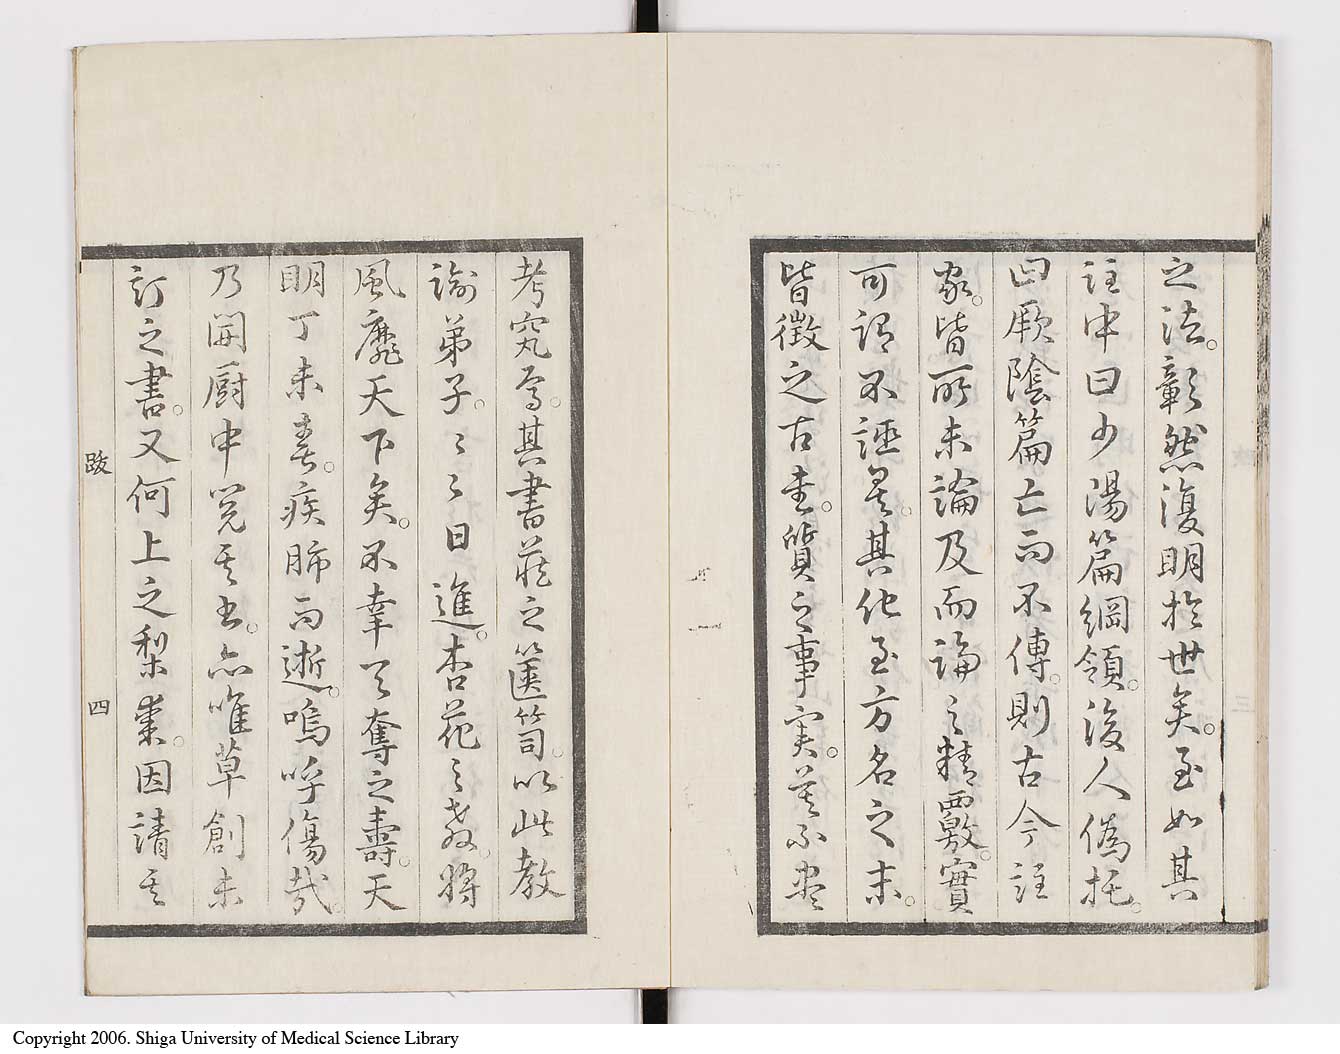 之法。彰然復明於世矣。至如其
註中曰少陽篇綱領。後人偽托。
曰厥陰篇亡而不傳。則古今註
家。皆所未論及而論之精覈。實
可謂不誣矣。其他至方名之末。
皆徵之古書。質之事実。莫不尽
三
考究焉。其書蔵之篋笥。以此教
諭弟子。〻〻日進。杏花之教。将
風靡天下矣。不幸天奪之壽。天
明丁未春。疾肺而逝。嗚呼傷哉。
乃開厨中覓其書。亦唯草創未
訂之書。又何上之梨棗。因請其
跋
四
Copyright 2006. Shiga University of Medical Science Library